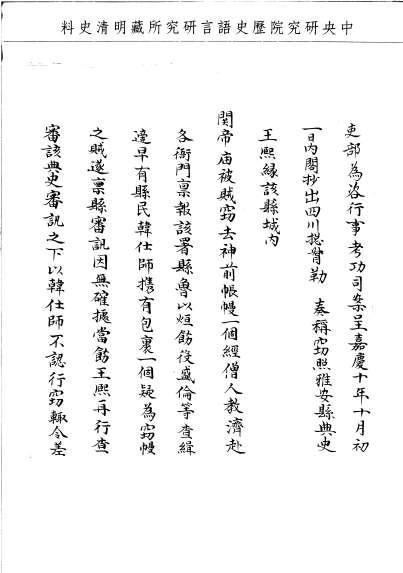 中央研究院歷史語言研究所藏明清史料
吏部為咨行事考功司案呈嘉慶十年十月初
一日內閣抄出四川總督勒　奏稱竊照雅安縣典史
王熙緣該縣城內
關帝庙被賊竊去神前帳幔一個經僧人教濟赴
各衙門稟報該署縣魯以烜飭役盛倫等查緝
達早有縣民韓仕師攜有包裹一個疑為竊幔
之賊遂稟縣審訊因無確據當飭王熙再行查
審該典史審訊之下以韓仕師不認行竊輙令差